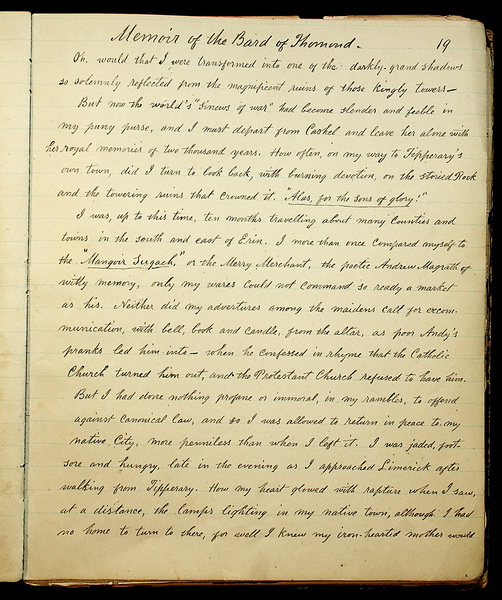 Memoir of the Bard of Thomond. 19
Oh, would that I were transformed into one of the darkly-grand shadows
so solemnly reflected from the magnificent ruins of those kingly towers—
But now the world's "sinews of war" had become slender and feeble in
my puny purse, and I must depart from Cashel and leave her alone with
her royal memories of two thousand years. How often, on my way to Tipperary's
own town, did I turn to look back, with burning devotion, on the storied Rock
and the towering ruins that crowned it. "Alas, for the sons of glory!"
I was, up to this time, ten months travelling about many Counties and
towns in the south and east of Erin. I more than once compared myself to
the "Mangoir Sugach," or the Merry Merchant, the poetic Andrew Magrath of
witty memory, only my wares could not command so ready a market
as his. Neither did my adventures among the maidens call for excom-
munication, with bell, book and candle, from the altar, as poor Andy's
pranks led him into— when he confessed in rhyme that the Catholic
Church turned him out, and the Protestant Church refused to have him.
But I had done nothing profane or immoral, in my rambles, to offend
against Canonical law, and so I was allowed to return in peace to my
native City, more penniless than when I left it. I was jaded, foot-
sore and hungry, late in the evening as I approached Limerick after
walking from Tipperary. How my heart glowed with rapture when I saw,
at a distance, the lamps lighting in my native town, although I had
no home to turn to there, for well I knew my iron-hearted mother would